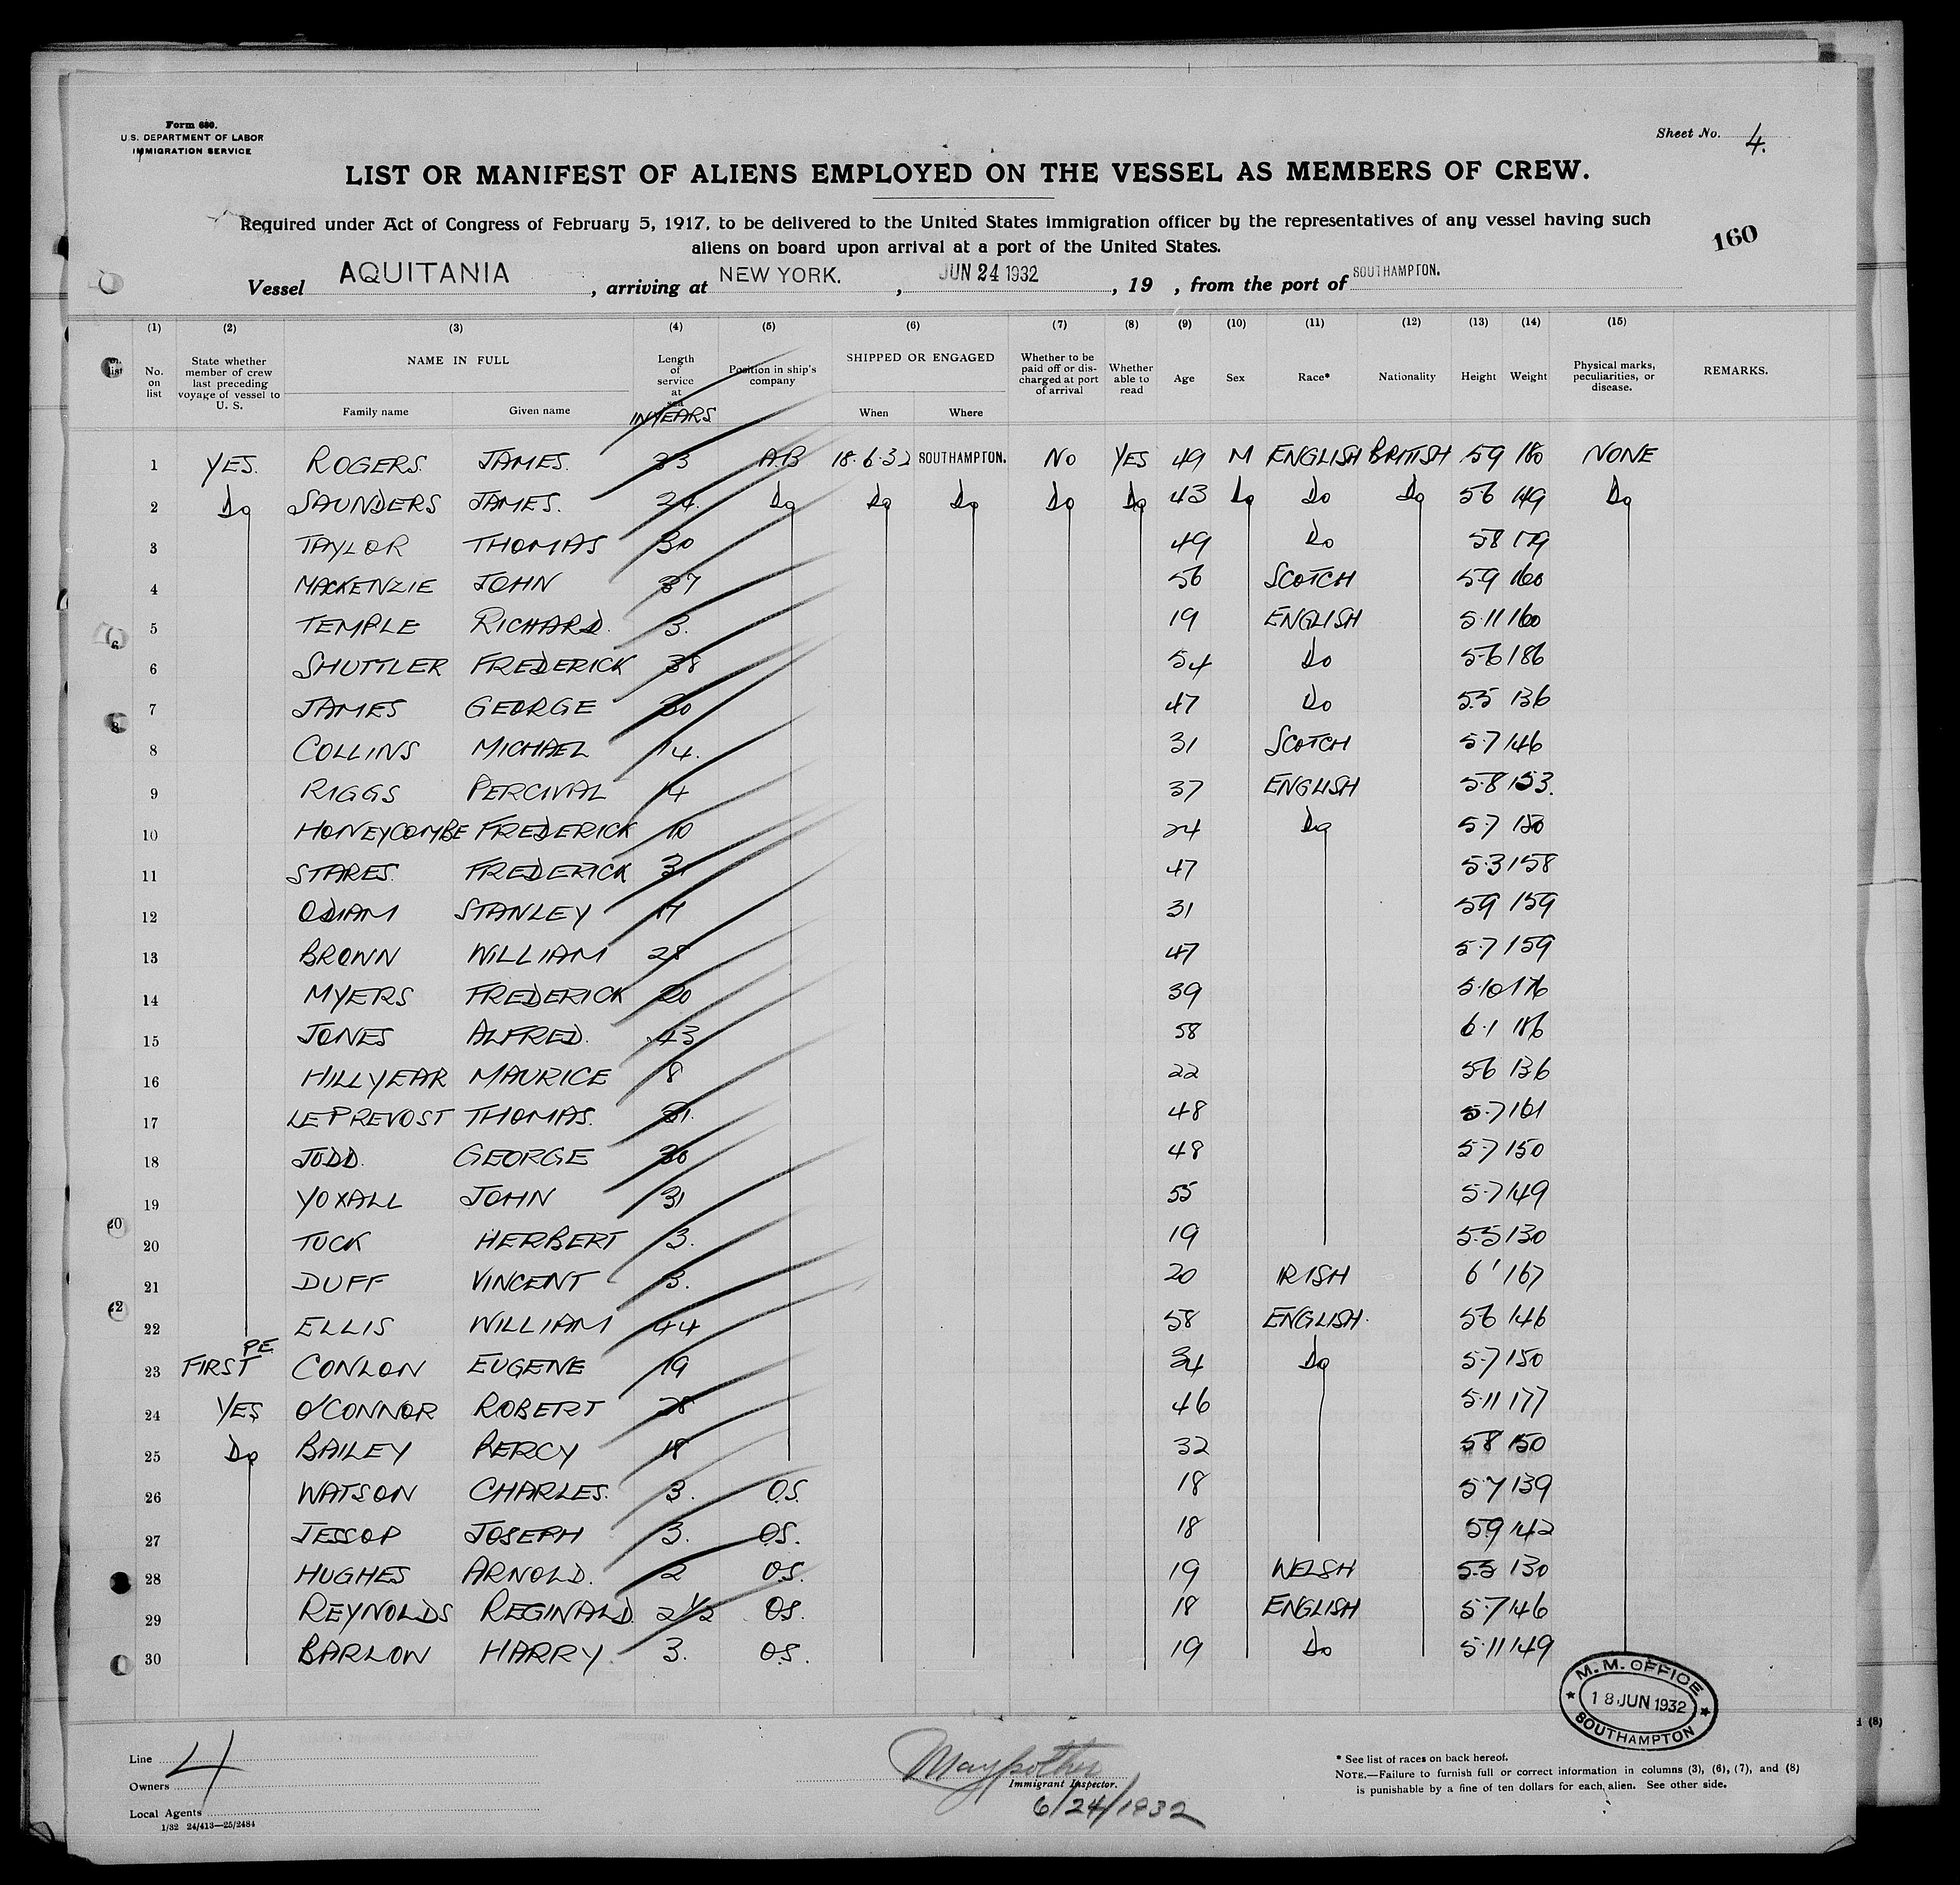 Form 680.
U.S. DEPARTMENT OF LABOR
IMMIGRATION SERVICE
Sheet No. 4.
LIST OR MANIFEST OF ALIENS EMPLOYED ON THE VESSEL AS MEMBERS OF CREW.
Required under Act of Congress of February 5, 1917, to be delivered to the United States immigration officer by the representatives of any vessel having such
aliens on board upon arrival at a port of the United States.
160
Vessel AQUITANIA, arriving at NEW YORK., JUN 24 1932, 19 , from the port of SOUTHAMPTON.
(1) (2) (3) (4) (5) (6) (7) (8) (9) (10) (11) (12) (13) (14) (15)
No. on list State whether member of crew last preceding voyage of vessel to U. S. NAME IN FULL Length of service at sea Position in ship's company SHIPPED OR ENGAGED Whether to be paid off or discharged at port of arrival Whether able to read Age Sex Race* Nationality Height Weight Physical marks, peculiarities, or disease. REMARKS.
Family name Given name IN YEARS When Where
1 YES. ROGERS. JAMES. 33 A.B 18.6.32 SOUTHAMPTON. NO YES 49 M ENGLISH BRITISH 5.9 180 NONE
2 Do SAUNDERS JAMES. 24. Do Do Do Do Do 43 Do Do Do 5.6 149 Do
3 TAYLOR THOMAS 30 49 Do 5.8 179
4 MACKENZIE JOHN 37 56 SCOTCH 5.9 160
5 TEMPLE RICHARD. 3. 19 ENGLISH 5.11 160
6 SHUTTLER FREDERICK 38 54 Do 5.6 186
7 JAMES GEORGE 30 47 Do 5.5 136
8 COLLINS MICHAEL 14. 31 SCOTCH 5.7 146
9 RIGGS PERCIVAL 14 37 ENGLISH 5.8 153.
10 HONEYCOMBE FREDERICK 10 24 Do 5.7 150
11 STARES. FREDERICK 31 47 5.3 158
12 ODIAM STANLEY 17 31 5.9 159
13 BROWN WILLIAM 28 47 5.7 159
14 MYERS FREDERICK 20 39 5.10 176
15 JONES ALFRED. 43 58 6.1 186
16 HILLYEAR MAURICE 8 22 5.6 136
17 LE PREVOST THOMAS. 31. 48 5.7 161
18 JUDD. GEORGE 30 48 5.7 150
19 YOXALL JOHN 31 55 5.7 149
20 TUCK HERBERT 3. 19 5.5 130
21 DUFF VINCENT 3. 20 IRISH 6' 167
22 ELLIS WILLIAM 44 58 ENGLISH. 5.6 146
23 FIRST PE. CONLON EUGENE 19 34 Do 5.7 150
24 YES O'CONNOR ROBERT 28 46 5.11 177
25 Do BAILEY PERCY 18 32 5.8 150
26 WATSON CHARLES. 3. O.S. 18 5.7 139
27 JESSOP JOSEPH 3. O.S. 18 5.9 142
28 HUGHES ARNOLD. 2 O.S. 19 WELSH 5.5 130
29 REYNOLDS REGINALD. 2 1/2 O.S. 18 ENGLISH 5.7 146
30 BARLOW HARRY. 3. O.S. 19 Do 5.11 149
M. M. OFFICE
18 JUN 1932
SOUTHAMPTON
Line
Owners
4
Local Agents
1/32 24/413—25/2484
Immigrant Inspector.
6/24/1932
* See list of races on back hereof.
NOTE.—Failure to furnish full or correct information in columns (3), (6), (7), and (8)
is punishable by a fine of ten dollars for each alien. See other side.